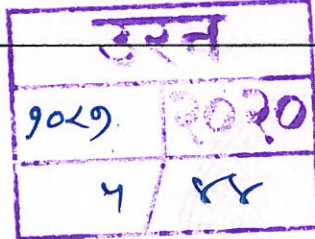 उरन
१०८१. २०२०
५ / ४४